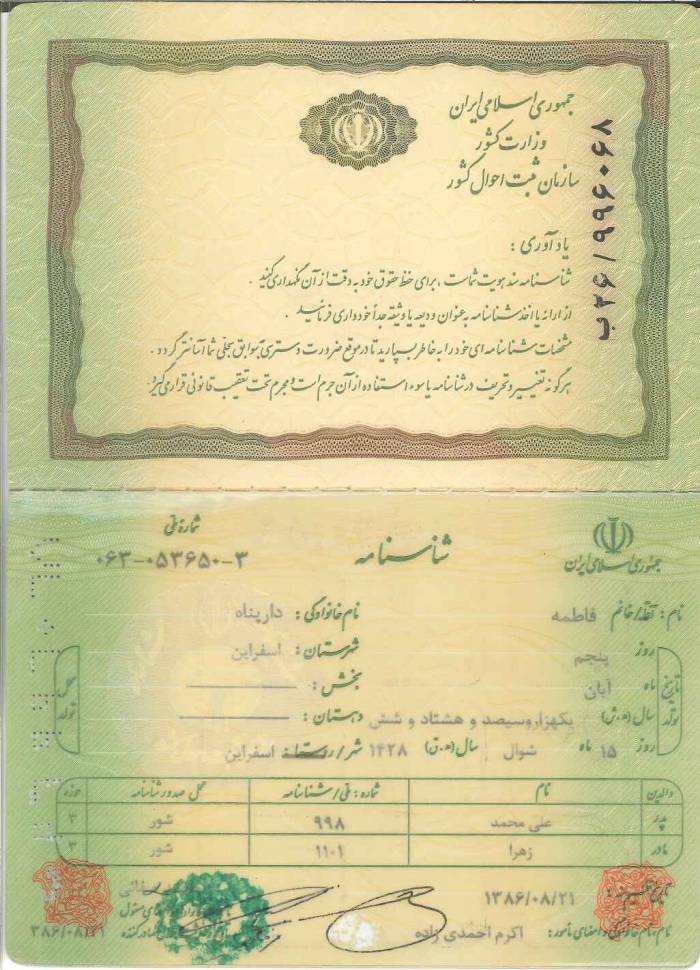 جمهوری اسلامی ایران
وزارت کشور
سازمان ثبت احوال کشور
ب۳۶/۹۹۶۰۶۸
یادآوری :
شناسنامه سند هویت شماست ، برای حفظ حقوق خود به دقت از آن نگهداری کنید .
از ارائه یا اخذ شناسنامه به عنوان ودیعه یا وثیقه جداً خودداری فرمائید .
مشخصات شناسنامه ای خود را به خاطر بسپارید تا در موقع ضرورت دسترسی به سوابق سجلی شما آسانتر گردد .
هرگونه تغییر و تحریف در شناسنامه یا سوء استفاده از آن جرم است و مجرم تحت تعقیب قانونی قرار می گیرد .
جمهوری اسلامی ایران
شناسنامه
شماره ملی
۰۶۳-۰۵۳۶۵۰-۳
نام : آقا/خانم فاطمه نام خانوادگی : دارپناه
تاریخ تولد روز پنجم شهرستان : اسفراین محل تولد
ماه آبان بخش :
سال (ه.ش) یکهزاروسیصد و هشتاد و شش دهستان :
روز ۱۵ ماه شوال سال (ه.ق) ۱۴۲۸ شهر/روستا اسفراین
والدین نام شماره : ملی/شناسنامه محل صدور شناسنامه حوزه
پدر علی محمد ۹۹۸ شور ۳
مادر زهرا ۱۱۰۱ شور ۳
تاریخ تنظیم سند : ۱۳۸۶/۰۸/۲۱
نام، نام خانوادگی و امضای مأمور : اکرم احمدی زاده
۱۳۸۶/۰۸/۲۱